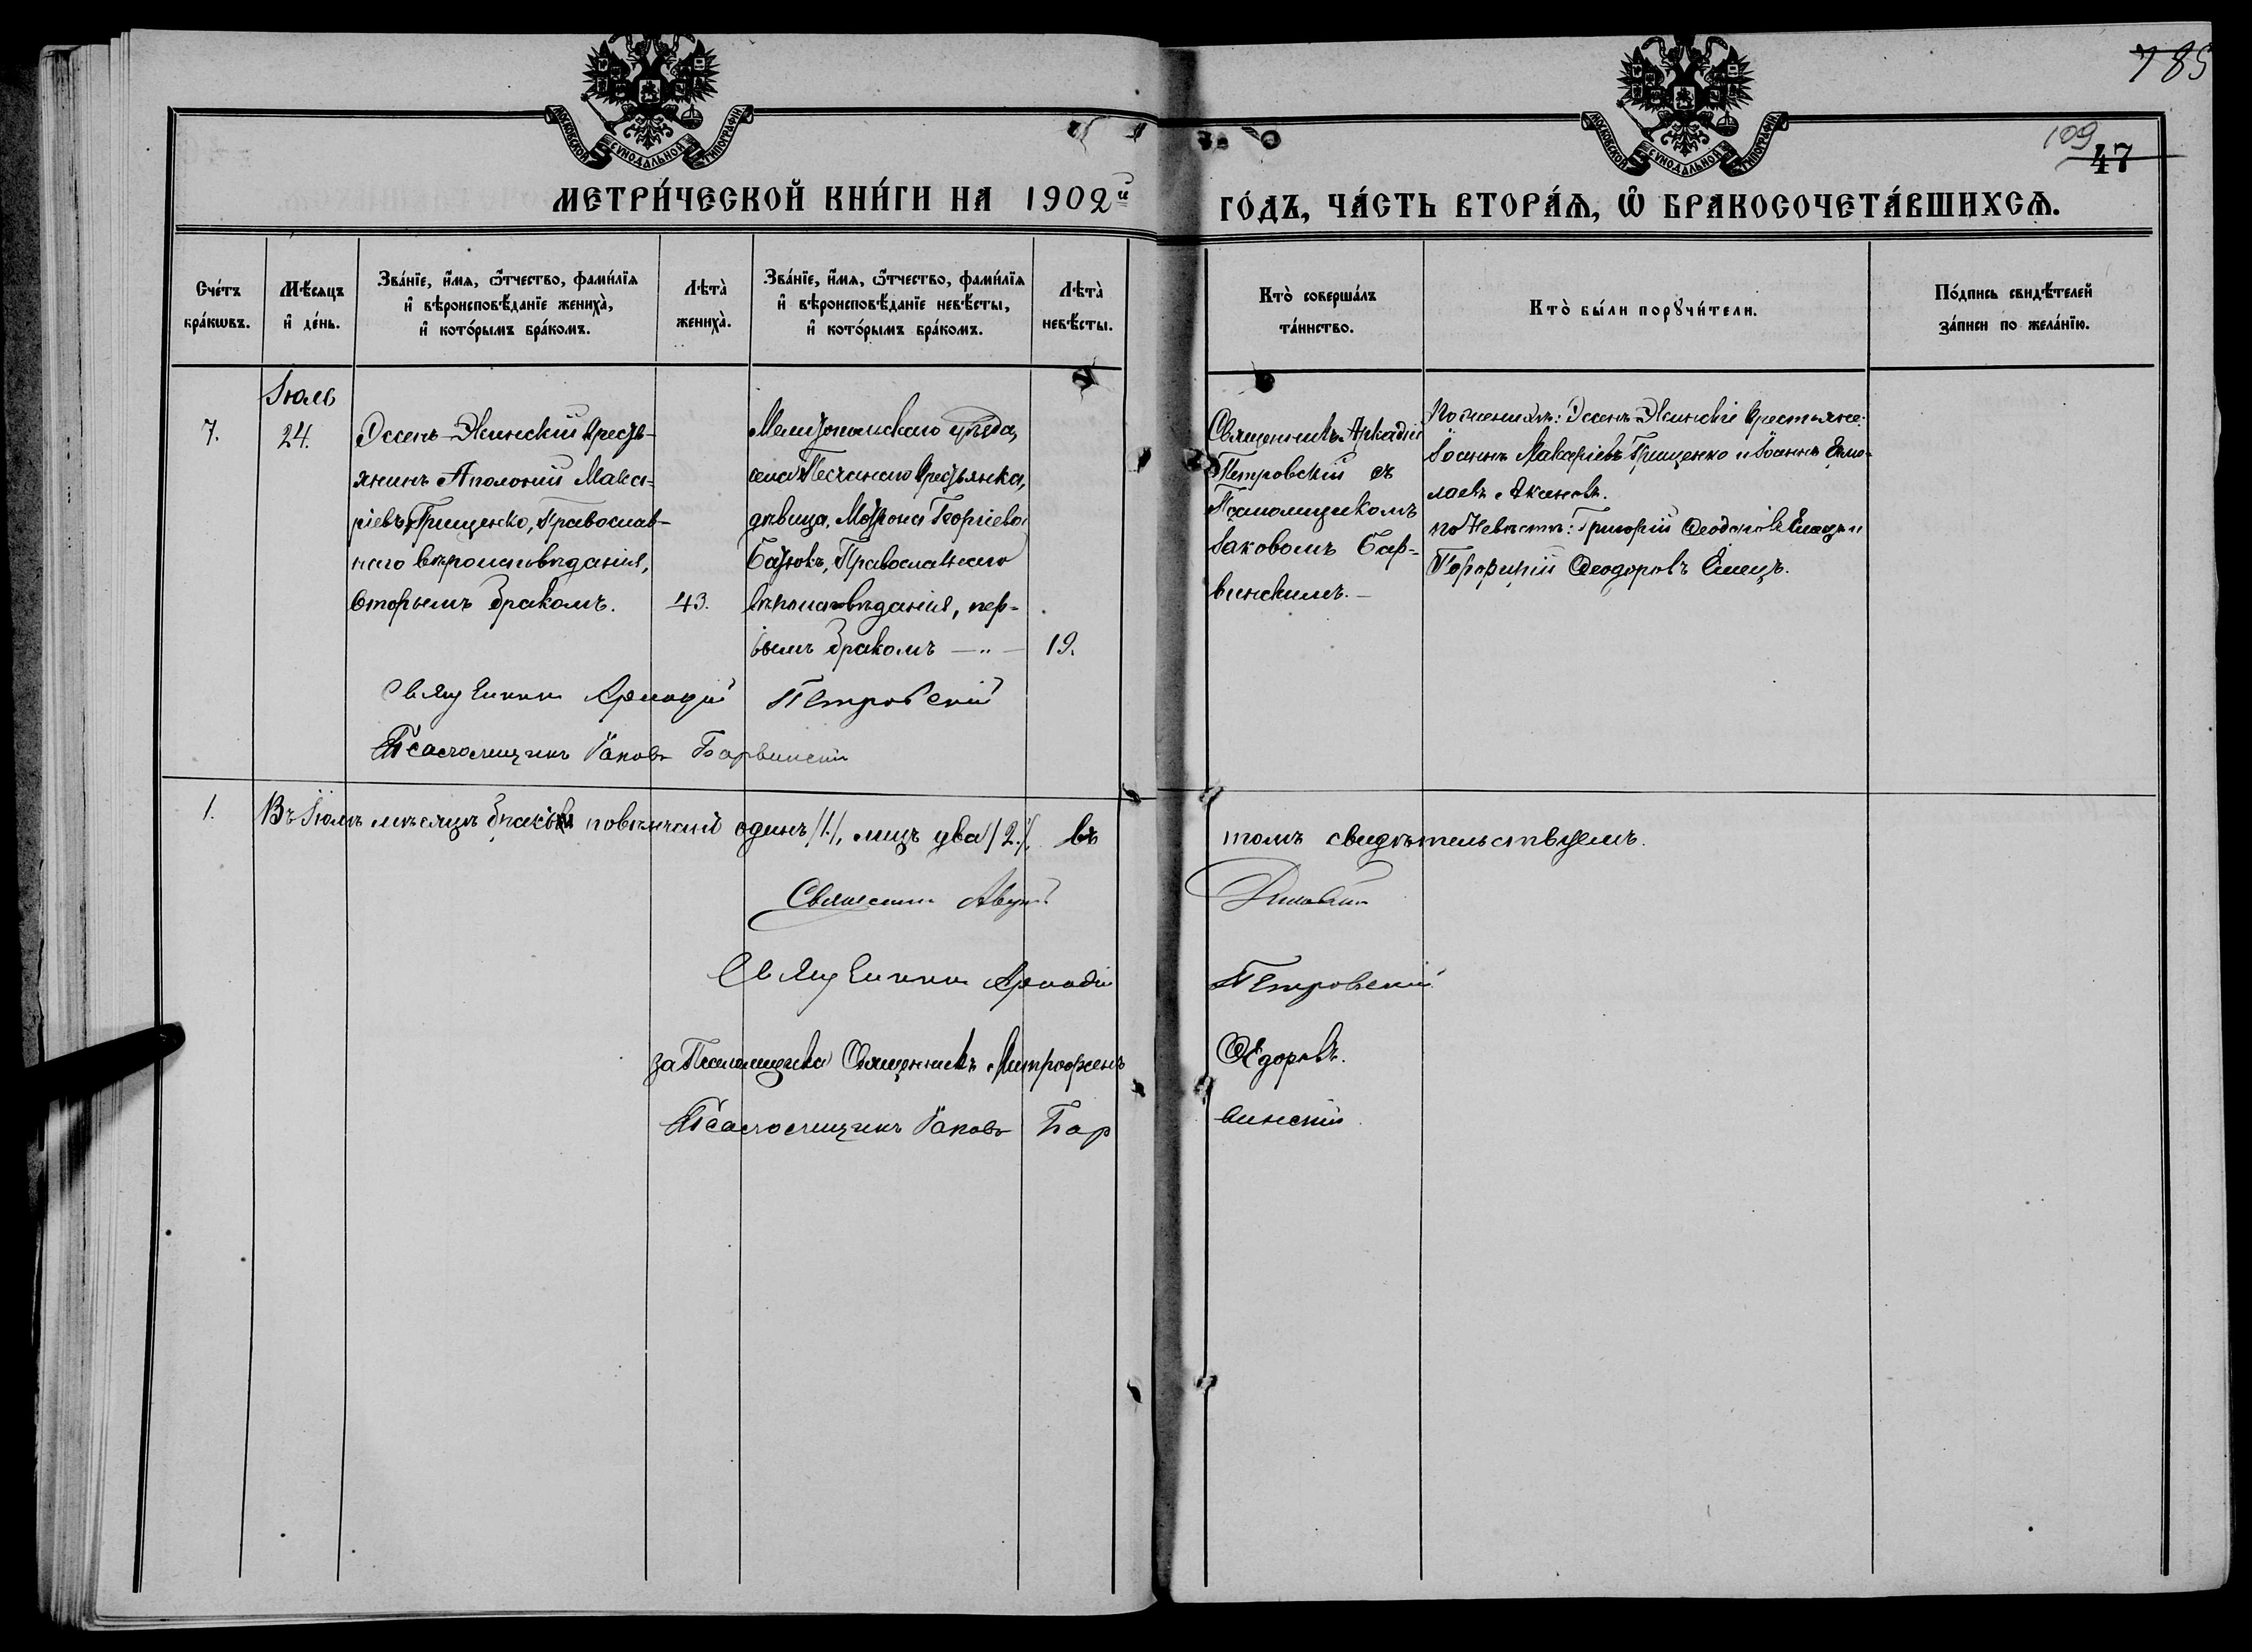 785
109
47
МОСКОВСКОЙ СѴНОДАЛЬНОЙ ТИПОГРАФІИ
МОСКОВСКОЙ СѴНОДАЛЬНОЙ ТИПОГРАФІИ
МЕТРИ́ЧЕСКОЙ КНИ́ГИ НА 1902й ГО́ДЪ, ЧА́СТЬ ВТОРА́Ѧ, Ѽ БРАКОСОЧЕТА́ВШИХСѦ.
Сче́тъ
бра́кѡвъ.
Мѣ́сяцъ
и҆ де́нь.
Зва́нїе, и҆́мя, ѻ҆́тчество, фами́лїя
и҆ вѣроисповѣ́данїе жениха̀,
и҆ кото́рымъ бра́комъ.
Лѣта̀
жениха̀.
Зва́нїе, и҆́мя, ѻ҆́тчество, фами́лїя
и҆ вѣроисповѣ́данїе невѣ́сты,
и҆ кото́рымъ бра́комъ.
Лѣта̀
невѣ́сты.
Кто̀ соверша́лъ
та́инство.
Кто̀ бы́ли порꙋчи́тели.
По́дпись свидѣ́телей
за́писи по жела́нїю.
7.
Іюль
24.
Эссенъ-Экинскій крестья-
янинъ Аполоній Мака-
ріевъ Грищенко, Православ-
наго вѣроисповѣданія,
вторымъ бракомъ.
43.
Мелитопольскаго уѣзда,
села Песчанаго крестьянка,
дѣвица, Матрона Георгіева
Батюкъ, Православнаго
вѣроисповѣданія, пер-
вымъ бракомъ — „ —
19.
Священникъ Аркадій
Петровскій съ
Псаломщикомъ
Іаковомъ Бар-
винскимъ.—
По женихѣ: Эссенъ-Экинскіе крестьяне:
Іоаннъ Макаріевъ Грищенко и Іоаннъ
по Невѣстѣ: Григорій Ѳеодоровъ Емецъ и
Порфирій Ѳеодоровъ Емецъ.
Священникъ Аркадій Петровскій
Псаломщикъ Іаковъ Барвинскій
1.
Въ Іюлѣ мѣсяцѣ браковъ повѣнчано одинъ /1./, лицъ два /2./, въ томъ свидѣтельствуемъ.
Священникъ
Священникъ Аркадій Петровскій
за Псаломщика Священникъ Митрофанъ Ѳедоровъ.
Псаломщикъ Іаковъ Барвинскій